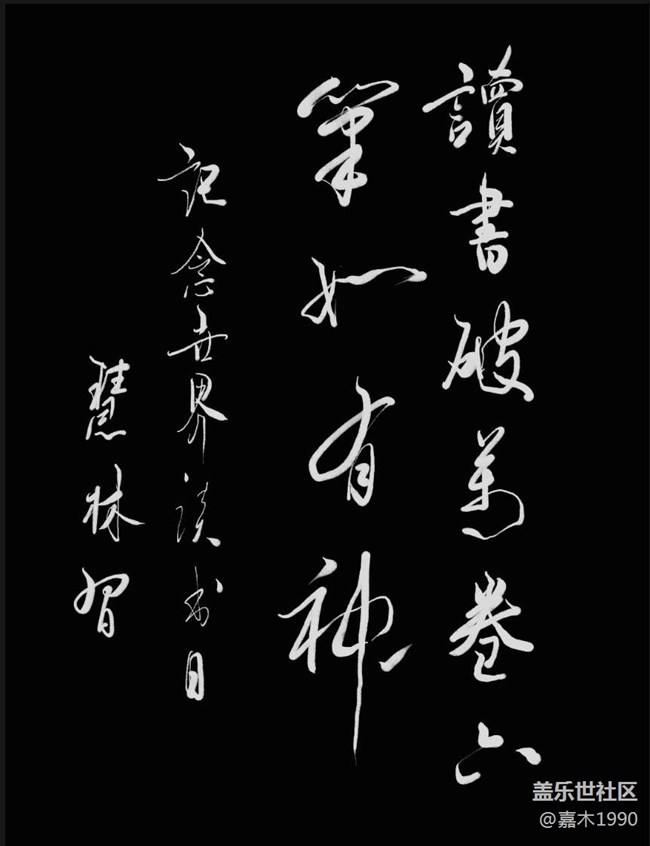 讀書破萬卷下
筆如有神
记念世界读书日
慧林習
盖乐世社区
@嘉木1990